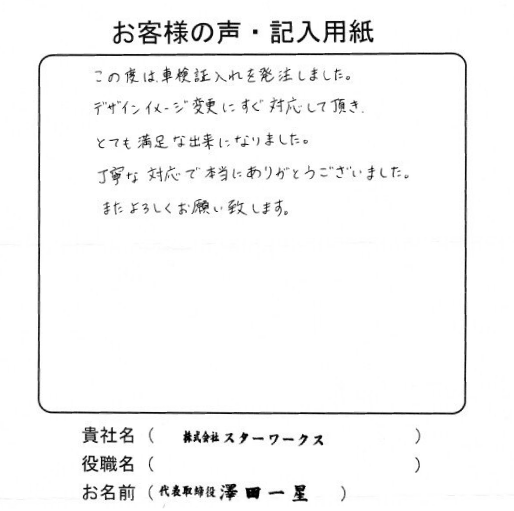 お客様の声・記入用紙
この度は、車検証入れを発注しました。
デザインイメージ変更にすぐ対応して頂き、
とても満足な出来になりました。
丁寧な対応で本当にありがとうございました。
またよろしくお願い致します。
貴社名（ 株式会社スターワークス ）
役職名（ ）
お名前（代表取締役 澤田一星 ）